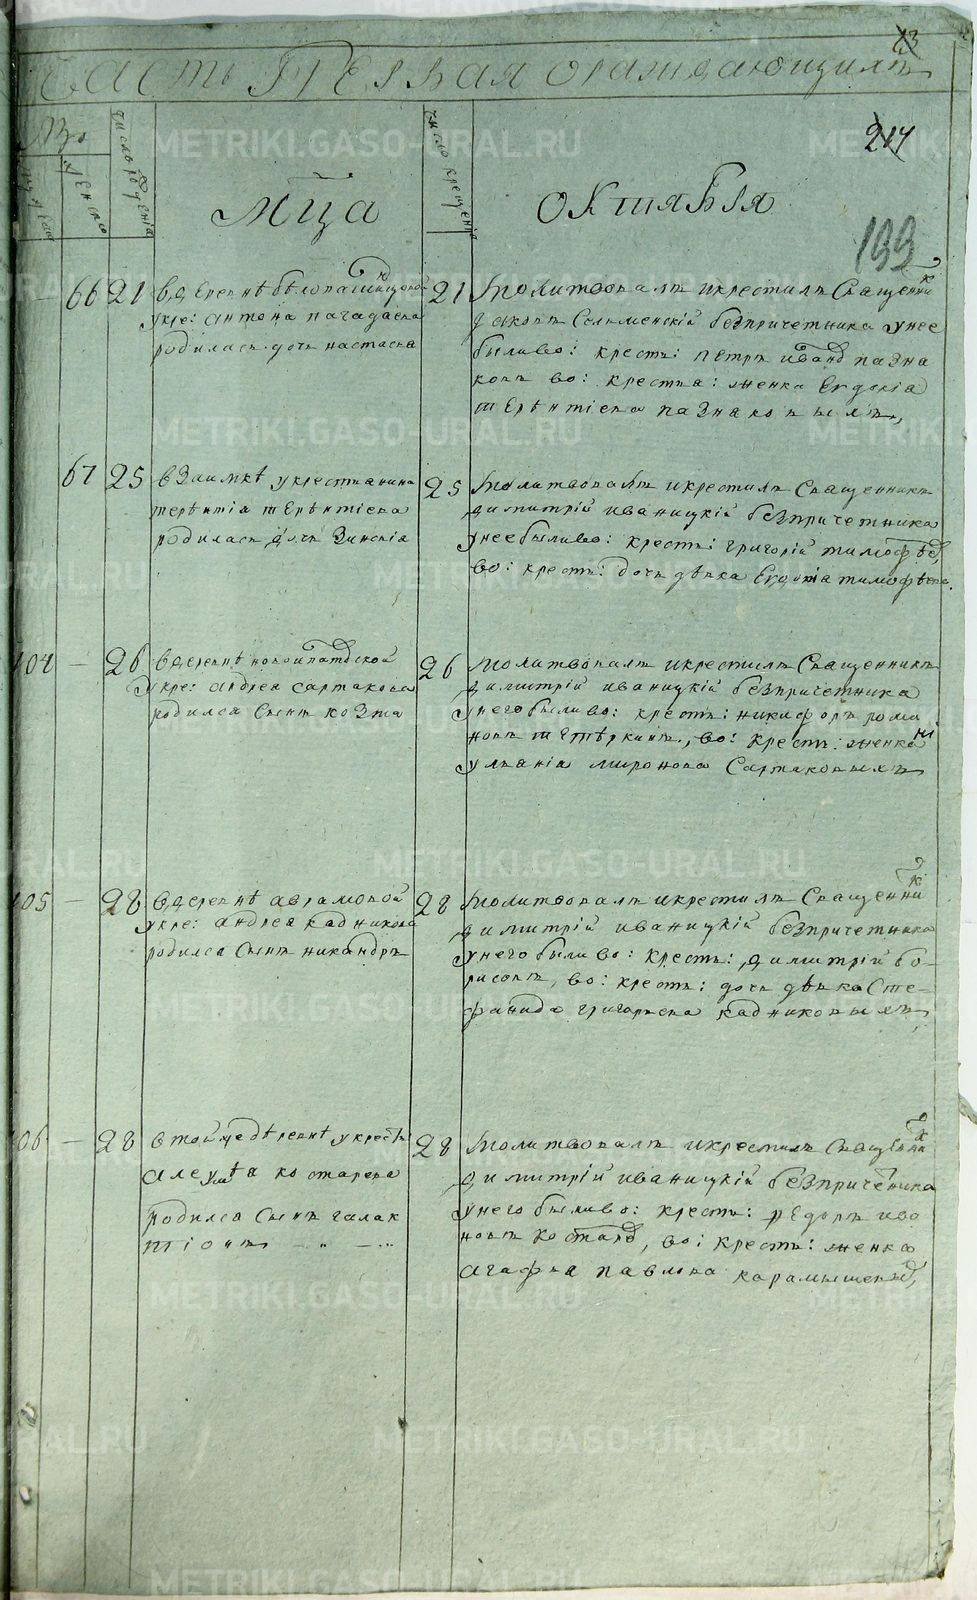 13
Часть первая ораждающихся
214
199
Мца октября
66 21 в деревне белопашинцовой
укре: антона пагадаева
родилась дочь настасиа
21 молитвовалъ икрестилъ Священникъ
Иаковъ Селеменскій безпричетника унее
были во: крестъ: петръ иванов пазна
ковъ во: крестна: женка Евдокіа
терентіева пазнаковыхъ,
67 25 в Заимке укрестианина
терентіа терентіева
родилась дочь Зиновіа
25 молитвовалъ икрестилъ Священникъ
димитрій иваницкій безпричетника
унее были во: крестъ: григорій тимофеев,
во: крестъ: дочь девка Евдокіа тимофеева.
104 — 26 в деревне новоипатовской
укре: андреа сартакова
родилса Сынъ козма
26 молитвовалъ икрестилъ Священникъ
димитрій иваницкій безпричетника
унего были во: крестъ: никифоръ рома
новъ тетеркинъ, во: крестъ: женка
ульаніа миронова Сартаковыхъ
105 — 28 в деревне аврамовой
укре: андреа кадникова
родилса Сынъ никандръ
28 молитвовалъ икрестилъ Священникъ
димитрій иваницкій безпричетника
унего были во: крестъ: димитрій бо-
рисовъ, во: крестъ: дочь девка Сте-
фанида григорьева кадниковыхъ
106 — 28 в тойжедеревне укрест:
алеѯеа костарева
родилса Сынъ галак
тіонъ
28 молитвовалъ икрестилъ Священникъ
димитрій иваницкій безпричетника
унего были во: крестъ: федоръ ива
новъ костарев, во: крестъ: женка
агафиа павлова карамышевых,
METRIKI.GASO-URAL.RU